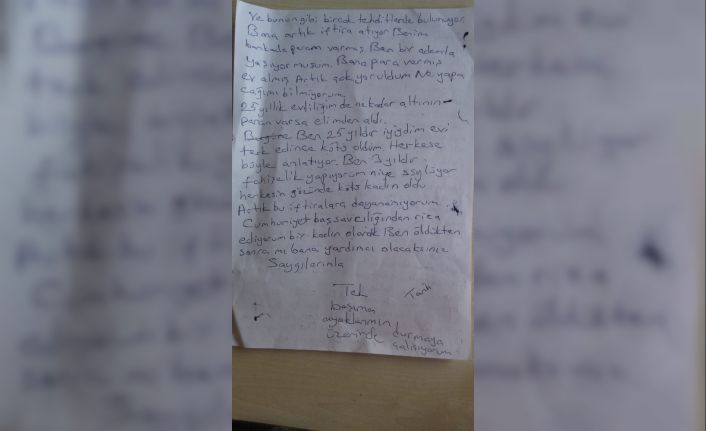 Ve bunun gibi birçok tehditlerde bulunuyor.
Bana artık iftira atıyor Benim
bankada param varmış Ben bir adamla
Yaşıyormuşum. Bana para vermiş
ev almış Artık çok yoruldum Ne yapa
cağımı bilmiyorum
25 yıllık evliliğimde nekadar altının
param varsa elimden aldı.
Ben 25 yıldır iyiydim evi
terk edince kötü oldum. Herkese
böyle anlatıyor. Ben 3 yıldır
fahişelik yapıyorum niye söylüyor
herkesin gözünde kötü kadın oldu
Artık bu iftiralara dayanamıyorum.
Cumhuriyet başsavcılığından rica
ediyorum bir kadın olarak Ben öldükten
sonra mı bana yardımcı olacaksınız
Saygılarımla
Tek Tarih
başıma
ayaklarımın
üzerinde durmaya
çalışıyorum